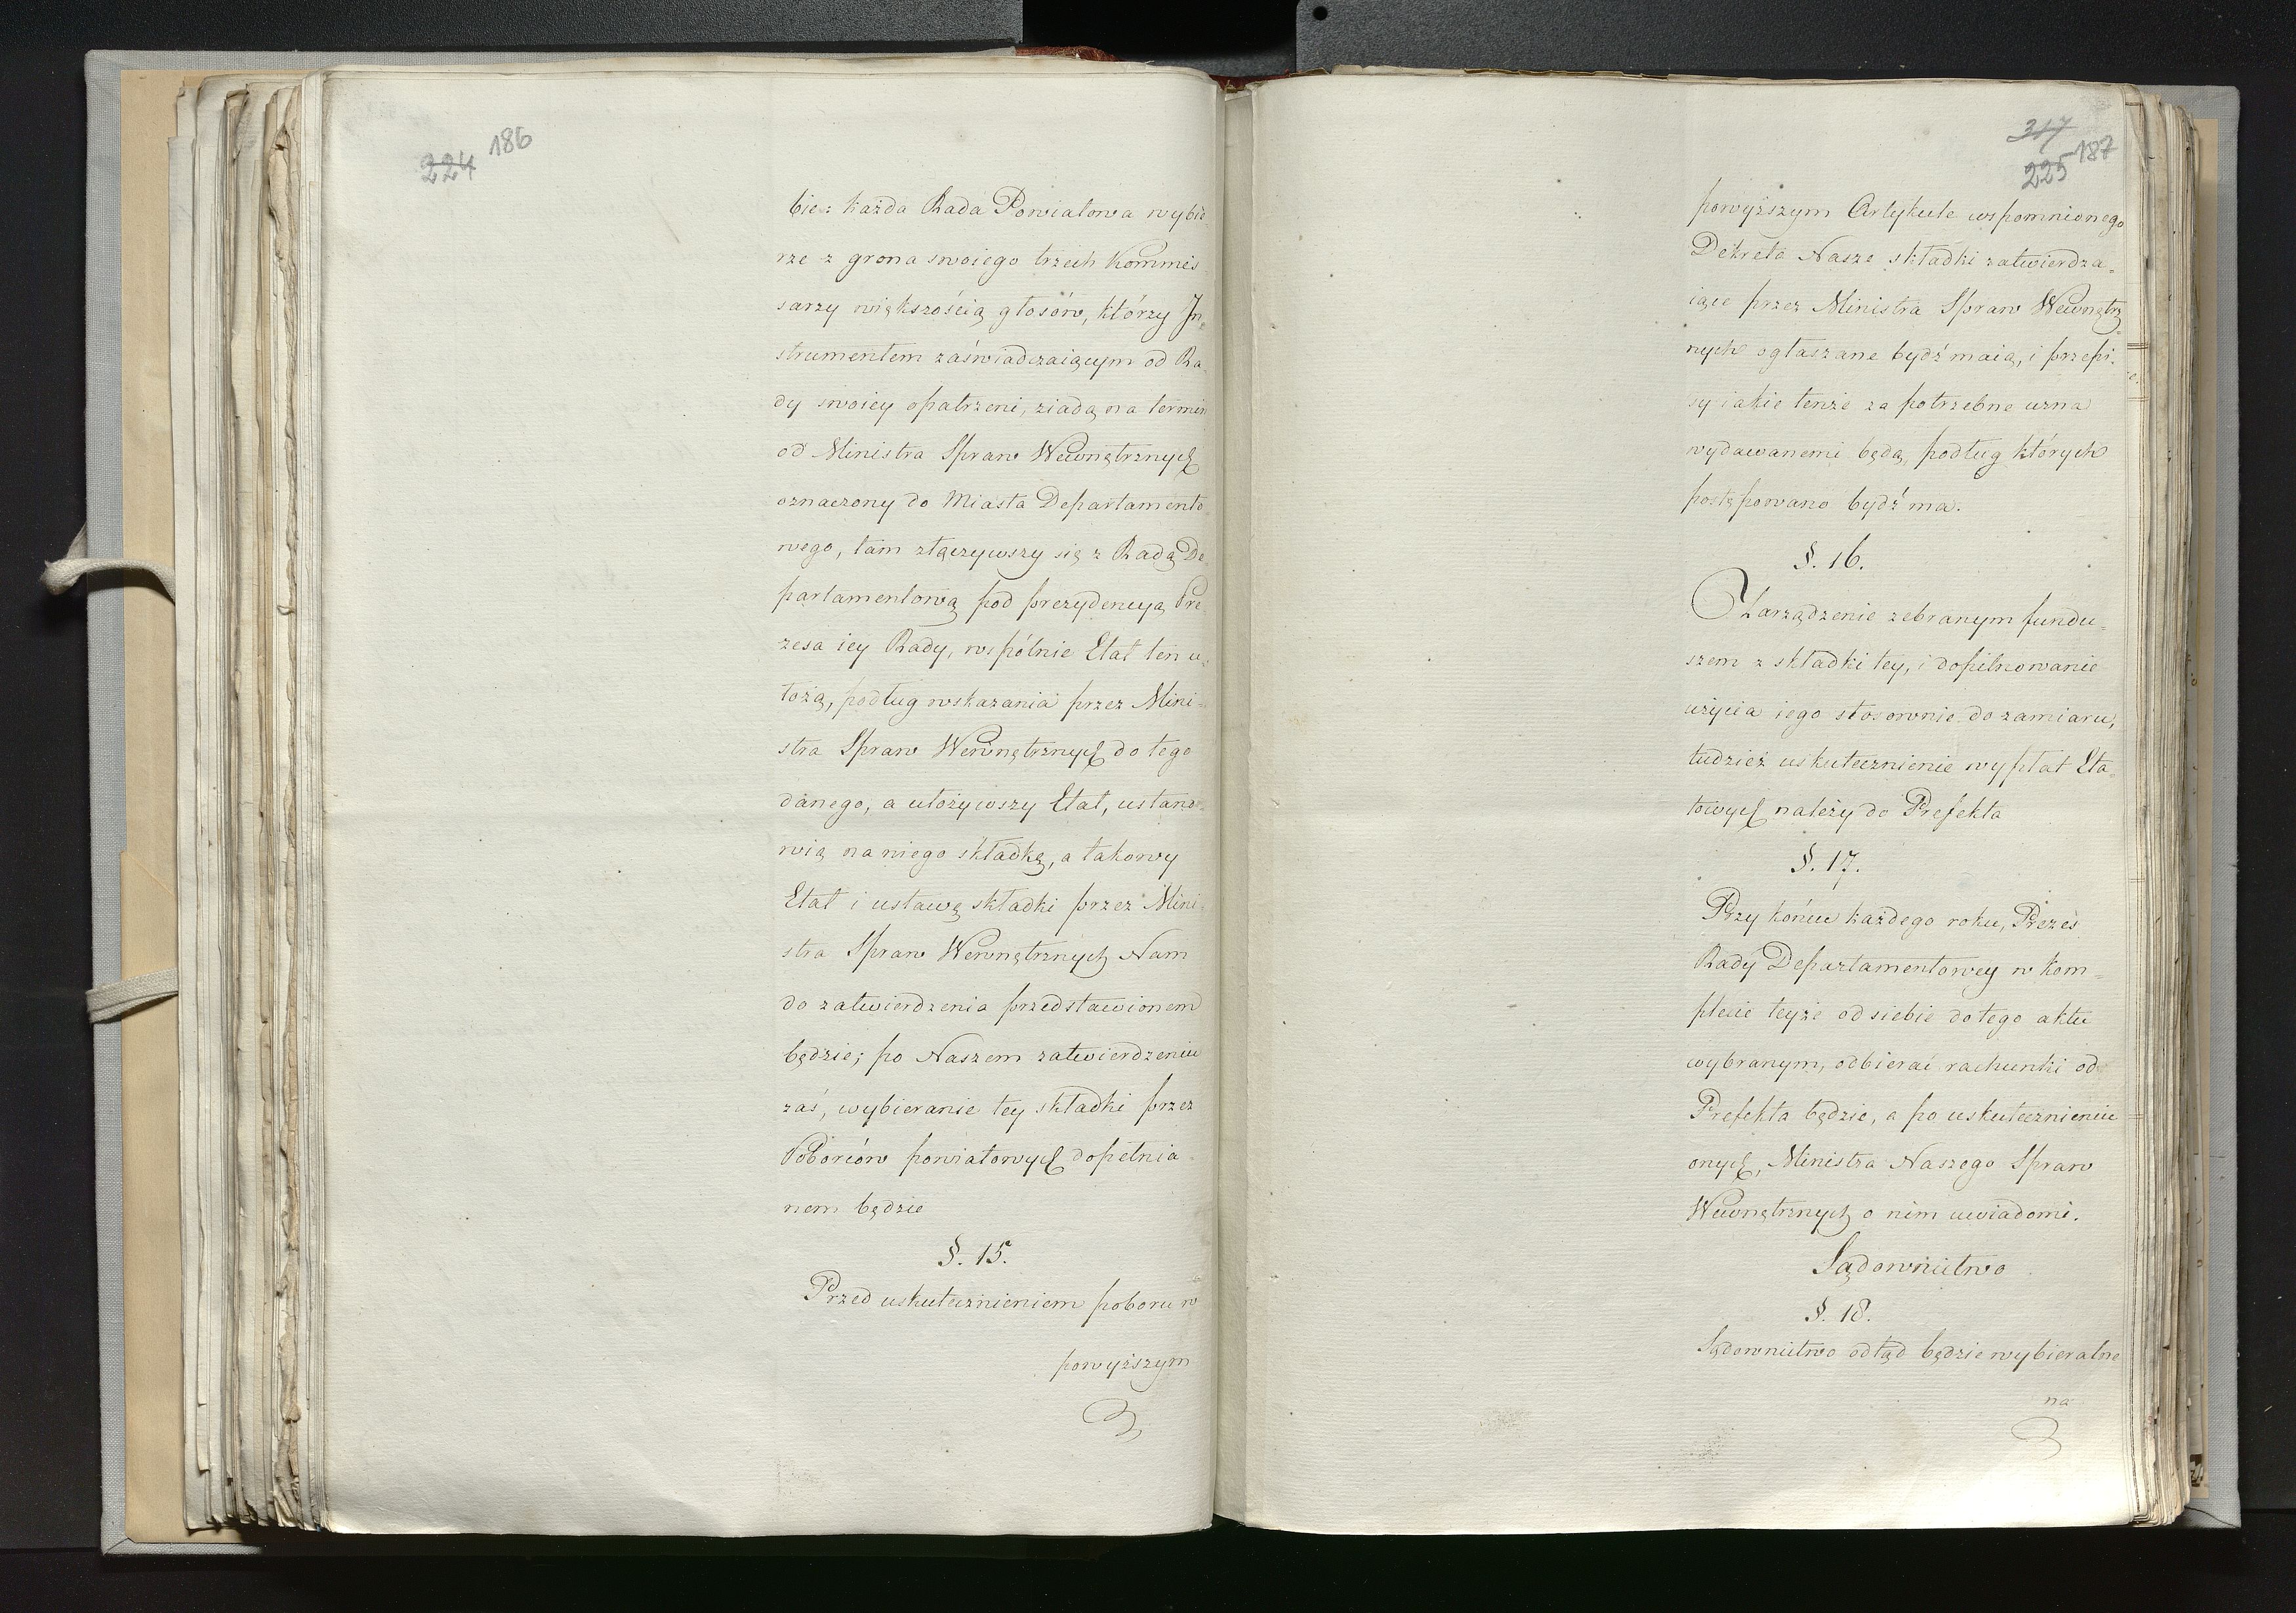 224 186
bie: każda Rada Powiatowa wybie
rze z grona swoiego trzech Kommis
sarzy większością głosów, którzy In
strumentem zaświadczaiącym od Ra
dy swoiey opatrzeni, ziadą na termin
od Ministra Spraw Wewnętrznych
oznaczony do Miasta Departamento
wego, tam złączywszy się z Radą De
partamentową pod prezydencyą Pre
zesa iey Rady, wspólnie Etat ten u
łożą, podług wskazania przez Mini=
stra Spraw Wewnętrznych do tego
danego, a ułożywszy Etat, ustano
wią na niego składkę, a takowy
Etat i ustawę składki przez Mini
stra Spraw Wewnętrznych Nam
do zatwierdzenia przedstawionem
będzie; po Naszem zatwierdzeniu
zaś, wybieranie tey składki przez
Poborców powiatowych dopełnia
nem będzie
§. 15.
Przed uskutecznieniem poboru w
powyższym
317
225 187
powyższym Artykule wspomnionego
Dekreta Nasze składki zatwierdza=
iące przez Ministra Spraw Wewnętrz
nych ogłaszane bydź maią, i przepi=
sy iakie tenże za potrzebne uzna
wydawanemi będą, podług których
postępowano bydź ma.
§. 16.
Zarządzenie zebranym fundu=
szem z składki tey, i dopilnowanie
użycia iego stosownie do zamiaru,
tudzież uskutecznienie wypłat Eta=
towych należy do Prefekta
§. 17.
Przy końcu każdego roku, Prezes
Rady Departamentowey w kom=
plecie teyże od siebie do tego aktu
wybranym, odbierać rachunki od
Prefekta będzie, a po uskutecznieniu
onych, Ministra Naszego Spraw
Wewnętrznych o nim uwiadomi.
Sądownictwo
§. 18.
Sądownictwo odtąd będzie wybieralne
na